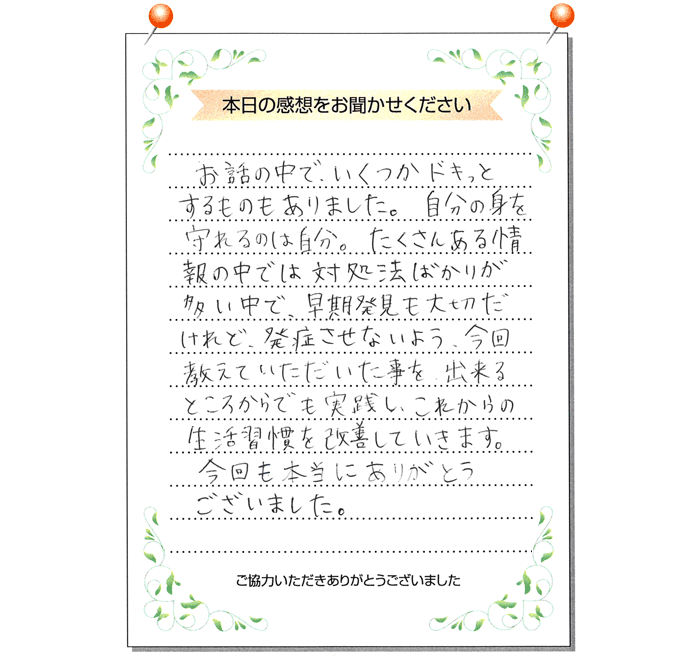 本日の感想をお聞かせください
お話の中で、いくつかドキっと
するものもありました。自分の身を
守れるのは自分。たくさんある情
報の中では対処法ばかりが
多い中で、早期発見も大切だ
けれど、発症させないよう、今回
教えていただいた事を、出来る
ところからでも実践し、これからの
生活習慣を改善していきます。
今回も本当にありがとう
ございました。
ご協力いただきありがとうございました